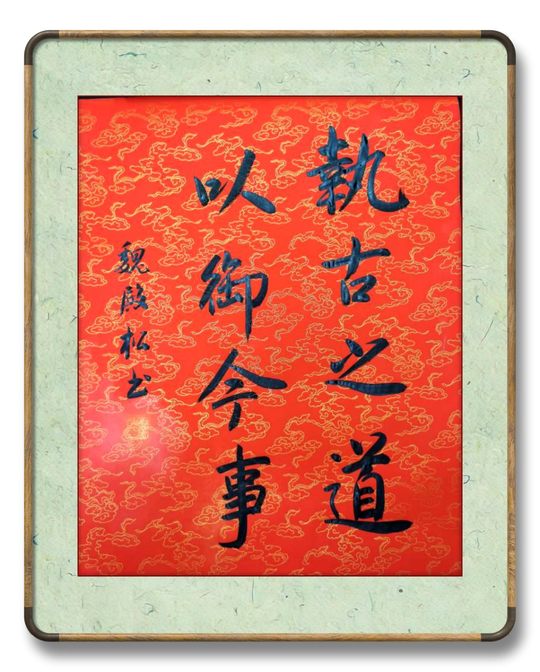 執古之道
以御今事
魏殿松书